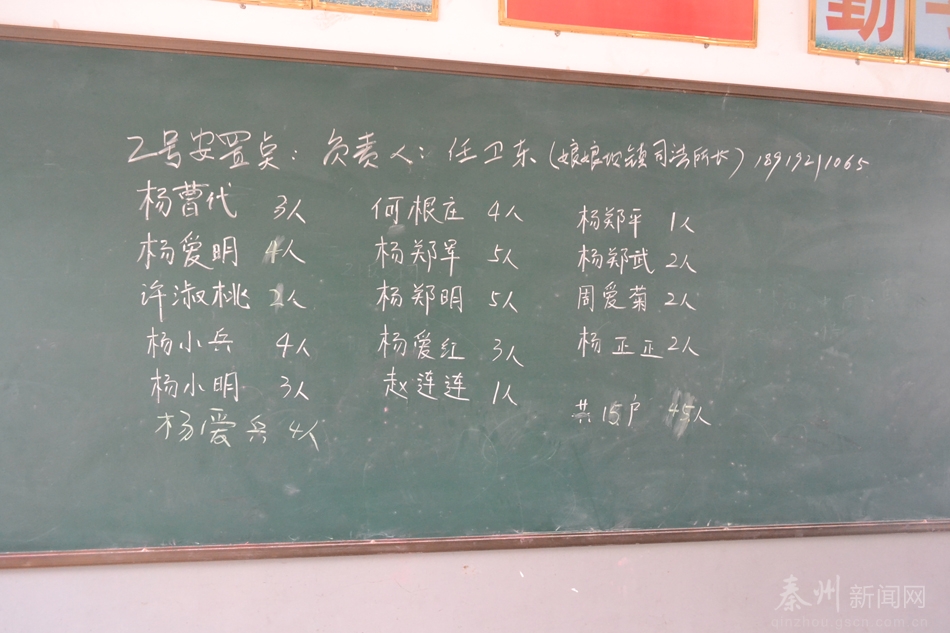 勤
2号安置点：负责人：任卫东（娘娘坝镇司法所长）18919211065
杨曹代 3人 何根庄 4人 杨郑平 1人
杨爱明 4人 杨郑罕 5人 杨郑武 2人
许淑桃 2人 杨郑明 5人 周爱菊 2人
杨小兵 4人 杨爱红 3人 杨正正 2人
杨小明 3人 赵连连 1人
杨爱兵 4人 共15户 45人
秦州新闻网
qinzhou.gscn.com.cn